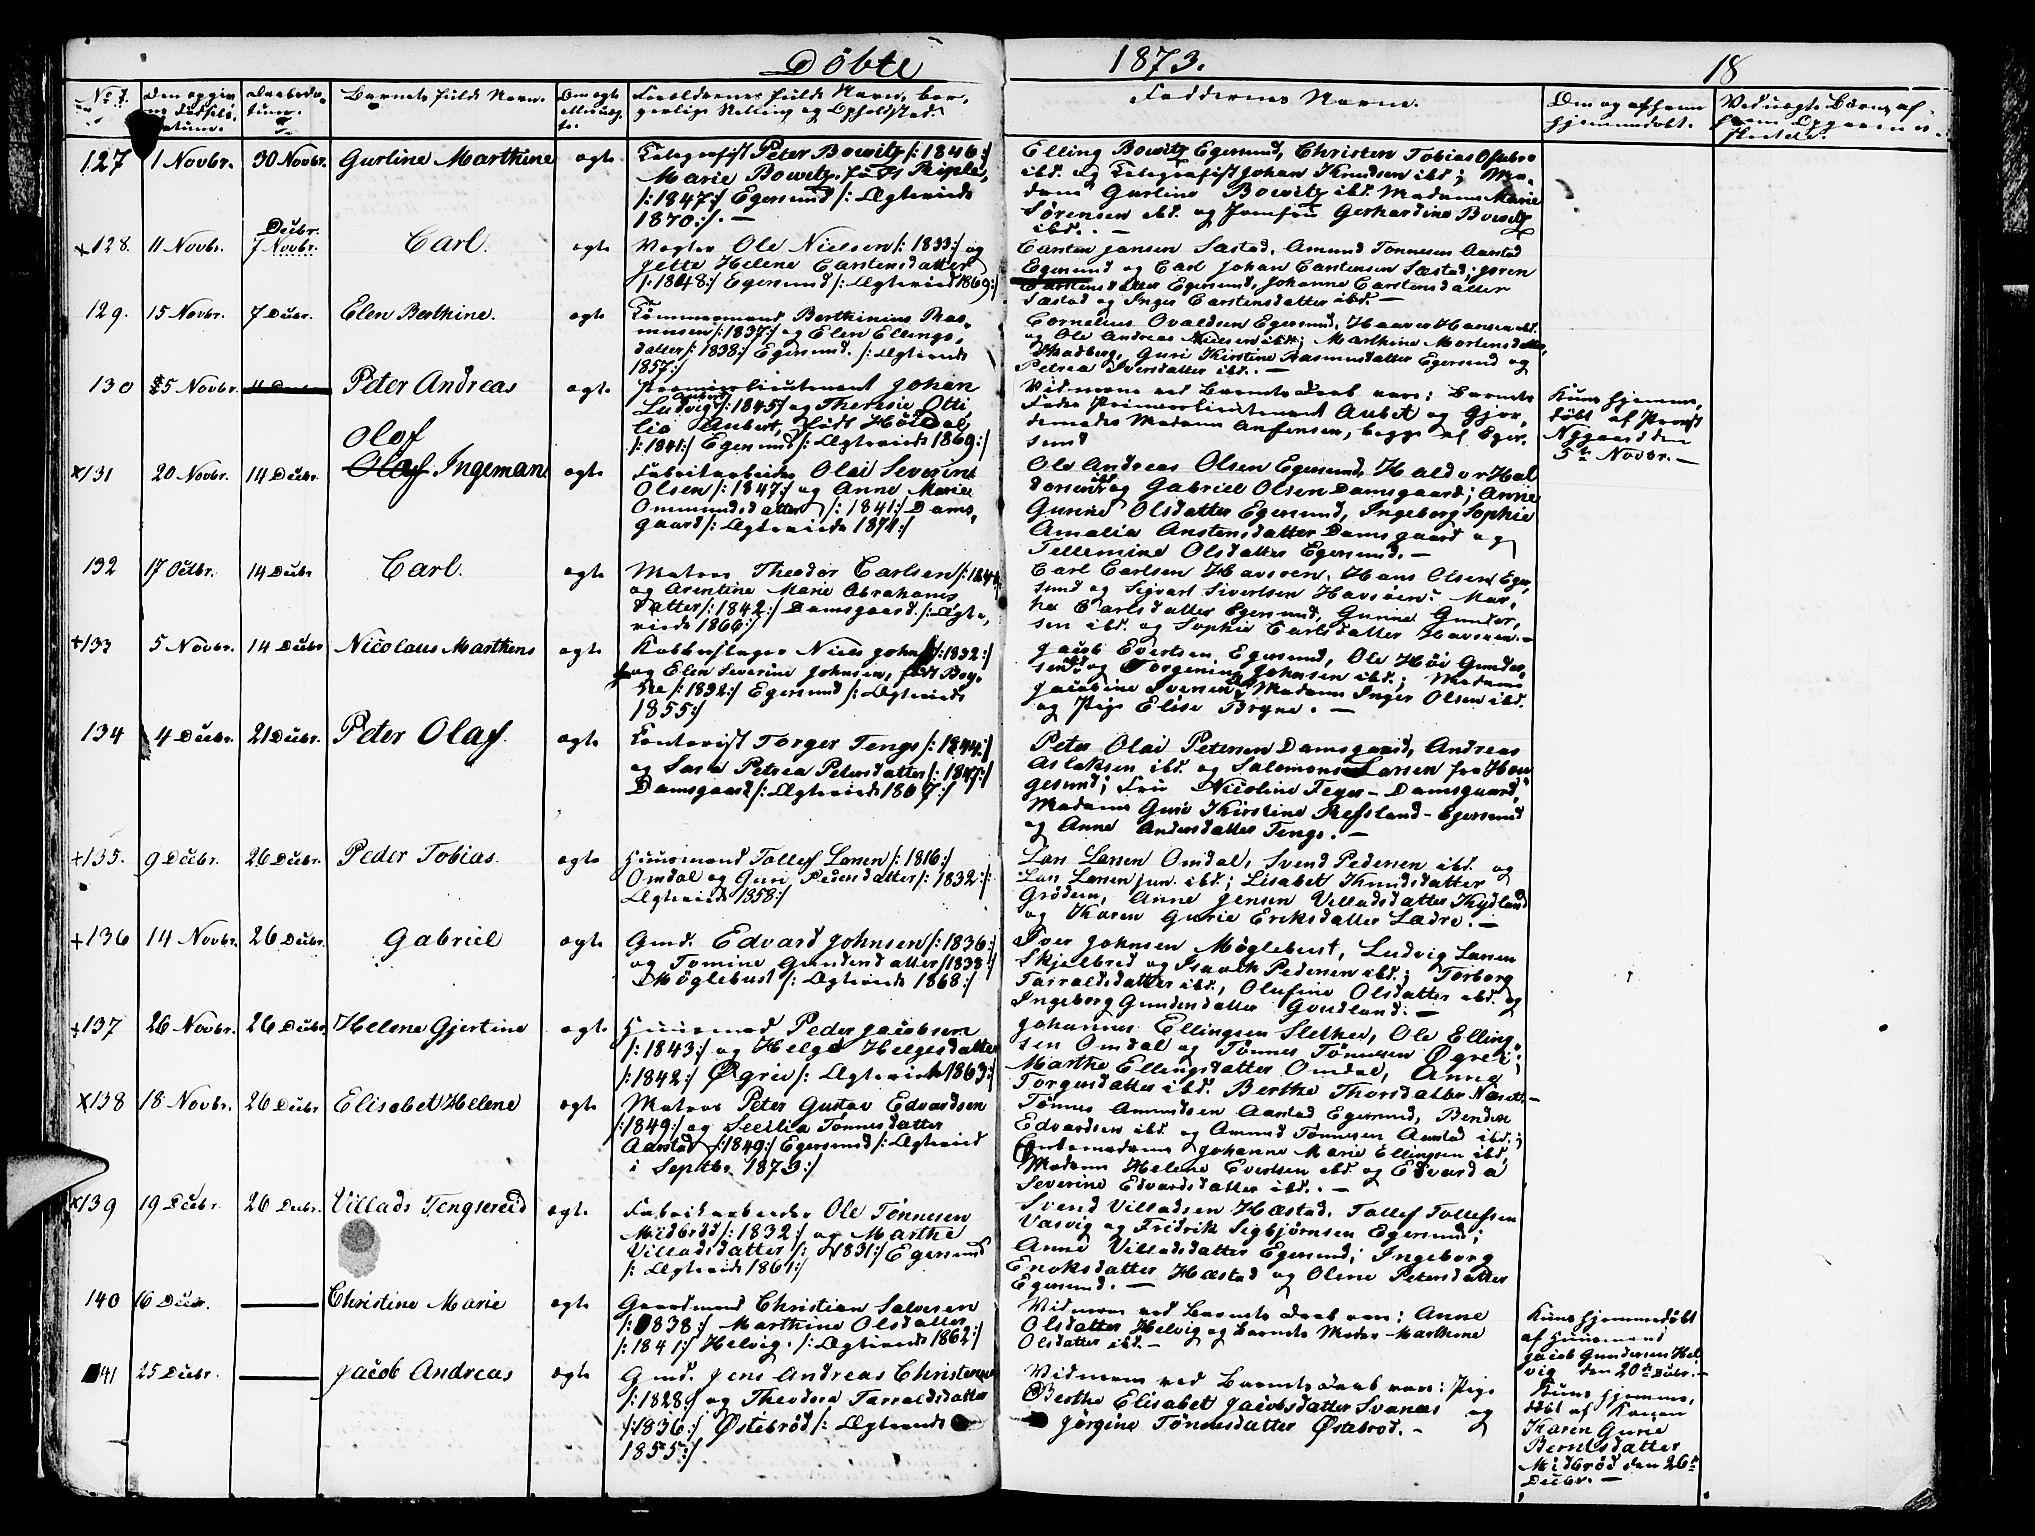 Döbte 1873. 18
No.
Barnets fulde Navn.
Faddernes Navne.
127 1 Novbr. 30 Novbr. Gurline Marthine ægte Telegrafist Peter Bowitz /:1846:/
Marie Bowitz, født Riple,
/:1847:/ Egersund /:Ægteviede
1870:/. —
Elling Bowitz Egersund, Christen Tobias
ibd. og Telegrafist Johan Knudsen ibd; Ma-
dame Gurline Bowitz ibd. Madame Marie
Sørensen ibd. og Jomfru Gerhardine Bowitz
ibd. —
128. 11 Novbr. 7 Decbr. Novbr. Carl. ægte Ole Nielsen /:1833:/ og
Jette Helene Carstensdatter
/:1848:/ Egersund /:Ægteviede 1869:/
Carsten Jansen Sæstad, Amund Tønnesen Aarstad
Egersund og Carl Johan Carstensen Sæstad; Jøren
Carstensdatter Egersund, Johanne Carstensdatter
Sæstad og Inger Carstensdatter ibd. —
129. 15 Novbr. 7 Decbr. Elen Berthine. ægte Tømmermand Berthinius Ras-
mussen /:1837:/ og Elen Ellings-
datter /:1838:/ Egersund. /:Ægteviede
1857:/
Cornelius Ovaldsen Egersund, Haaver Hansen ibd.
og Ole Andreas Nielsen ibd; Marthine Mortensdatter
Guri Kirstine Rasmusdatter Egersund og
Petrea Iversdatter ibd. —
130 Novbr. Peter Andreas ægte Premierlieutenant Johan
Ludvig Aubert /:1845:/ og Theresie Otti-
lia Aubert, født Höidal
/:1841:/ Egersund /:Ægteviede 1869:/
Vidnerne ved Barnets Daab vare: Barnets
Fader Primierlieutenant Aubert og Gjor-
demoder Madam Anfensen, begge af Eger-
sund
Kun hjemme-
døbt af Provst
Nygaard den
5te Novbr. —
131 20 Novbr. 14 Decbr. Olaf Ingeman ægte Fabrikarbeider Olai Severin
Olsen /:1847:/ og Anne Marie
Ommundsdatter /:1841:/ Dams-
gaard /:Ægteviede 1871:/
Ole Andreas Olsen Egersund, Haldor Hal-
dorsen ibd og Gabriel Olsen Damsgaard; Anne
Gunne Olsdatter Egersund, Ingeborg Sophie
Amalia Anstensdatter Damsgaard og
Tellemine Olsdatter Egersund. —
132 17 Octbr. 14 Decbr Carl. ægte Matros Theodor Carlsen
og Asentine Marie Abrahams-
datter /:1842:/ Damsgaard. /:Ægte-
viede 1866:/
Carl Carlsen Havsøen, Hans Olsen Eger-
sund og Sigvart Sivertsen Havsøen; Mar-
the Carlsdatter Egersund, Gunne Gunder-
sen ibd. og Sophie Carlsdatter Havsøen. —
133 5 Novbr. 14 Decbr Nicolaus Marthens ægte Kobberslager Niels Johnsen /:1832:/
og Elen Severine Johnsen, født
/:1832:/ Egersund /:Ægteviede
1855:/
Jacob Evertsen Egersund, Ole Höi Gunder-
sen ibd og Torgenius Johnsen ibd.; Madame
Jacobine Svensen, Madame Inger Olsen ibd.
og Pige Elise Bryne. —
134 4 Decbr. 21 Decbr. Peter Olaf. ægte Contorist Torger Tengs /:1844:/
og Sara Petrea Petersdatter /:1847:/
Damsgaard /:Ægteviede 1867:/
Peter Olai Petersen Damsgaard, Andreas
Aslaksen ibd. og Salomon Larsen fra Hau-
gesund; Fru Nicoline Feyer - Damsgaard,
Madame Guri Kirstine Refsland - Egersund
og Anne Andersdatter Tengs. —
135. 9 Decbr. 26 Decbr. Peder Tobias. ægte Huusmand Tollef Larsen /:1816:/
Omdal og Guri Pedersdatter /:1832:/
Ægteviede 1858:/
Lars Larsen Omdal, Svend Pedersen ibd. og
Lars Larsen jun. ibd.; Lisabet Knudsdatter
Grödem, Anne Jensen Villadsdatter Kydland
og Karen Gurie Eriksdatter Lædre. —
136 14 Novbr. 26 Decbr. Gabriel ægte Gmd. Edvard Johnsen /:1836:/
og Tomine Gundersdatter /1838:/
Møglebust /:Ægteviede 1868:/
Iver Johnsen Møglebust, Ludvig Larsen
Skjelbred og Isack Pedersen ibd.; Torborg
Tarraldsdatter ibd., Olufine Olsdatter ibd. og
Ingeborg Gundersdatter Grudland. —
137 26 Novbr. 26 Decbr. Helene Gjertine ægte Huusmand Peder Jacobsen
/:1843:/ og Helge Helgesdatter
/:1842:/ Øgrei /:Ægteviede 1863:/
Johannes Ellingsen Slethei, Ole Elling-
sen Omdal og Tønnes Tønnesen Øgrei;
Marthe Ellingsdatter Omdal, Anne
Torgersdatter ibd. Berthe Thorsdatter
138 18 Novbr. 26 Decbr Elisabet Helene ægte Matros Peter Gustav Edvardsen
/:1849:/ og Secillia Tønnesdatter
Aarstad /:1849:/ Egersund /:Ægteviede
i Septbr. 1873:/
Tønnes Amundsen Aarstad Egersund, Bendix
Edvardsen ibd. og Amund Tønnesen Aarstad ibd.;
Enkemadame Johanne Marie Ellingsen ibd,
Madame Helene Evertsen ibd. og Edvarda
Severine Edvardsdatter ibd. —
139 19 Decbr. 26 Decbr. Villads Tengsereid ægte Fabrikarbeider Ole Tønnesen
Midbröd /:1832:/ og Marthe
Villadsdatter /:1831:/ Egersund
/:Ægteviede 1861:/
Svend Villadsen Hæstad, Tollef Tollefsen
Vasvig og Fridrik Sigbjørnsen Egersund;
Anne Villadsdatter Egersund; Ingeborg
Eriksdatter Hæstad og Olene Petersdatter
Egersund. —
140 16 Decbr. — Christine Marie ægte Gaardmand Christian Salvesen
/:1838:/ Marthine Olsdatter
/:1841:/ Helvig. /:Ægteviede 1862:/
Vidnerne ved Barnets Daab vare: Anne
Olsdatter Helvig og Barnets Moder - Marthine
Olsdatter ibd. —
Kun hjemmedöbt
af Huusmand
Jacob Gundersen Hel-
vig den 20de Decbr. —
141 25 Decbr. — Jacob Andreas ægte Gmd. Jens Andreas Christensen
/:1828:/ og Theodora Tarraldsdatter
/:1836:/ Østebröd /:Ægteviede
1855:/
Vidnerne ved Barnets Daab vare: Pige
Berthe Elisabet Jacobsdatter Svanæs og
Jørgine Tønnesdatter Østebröd. —
Kun hjemme-
døbt af Konen
Karen Gurie
Berntsdatter
Midbröd den 26de
Decbr. —